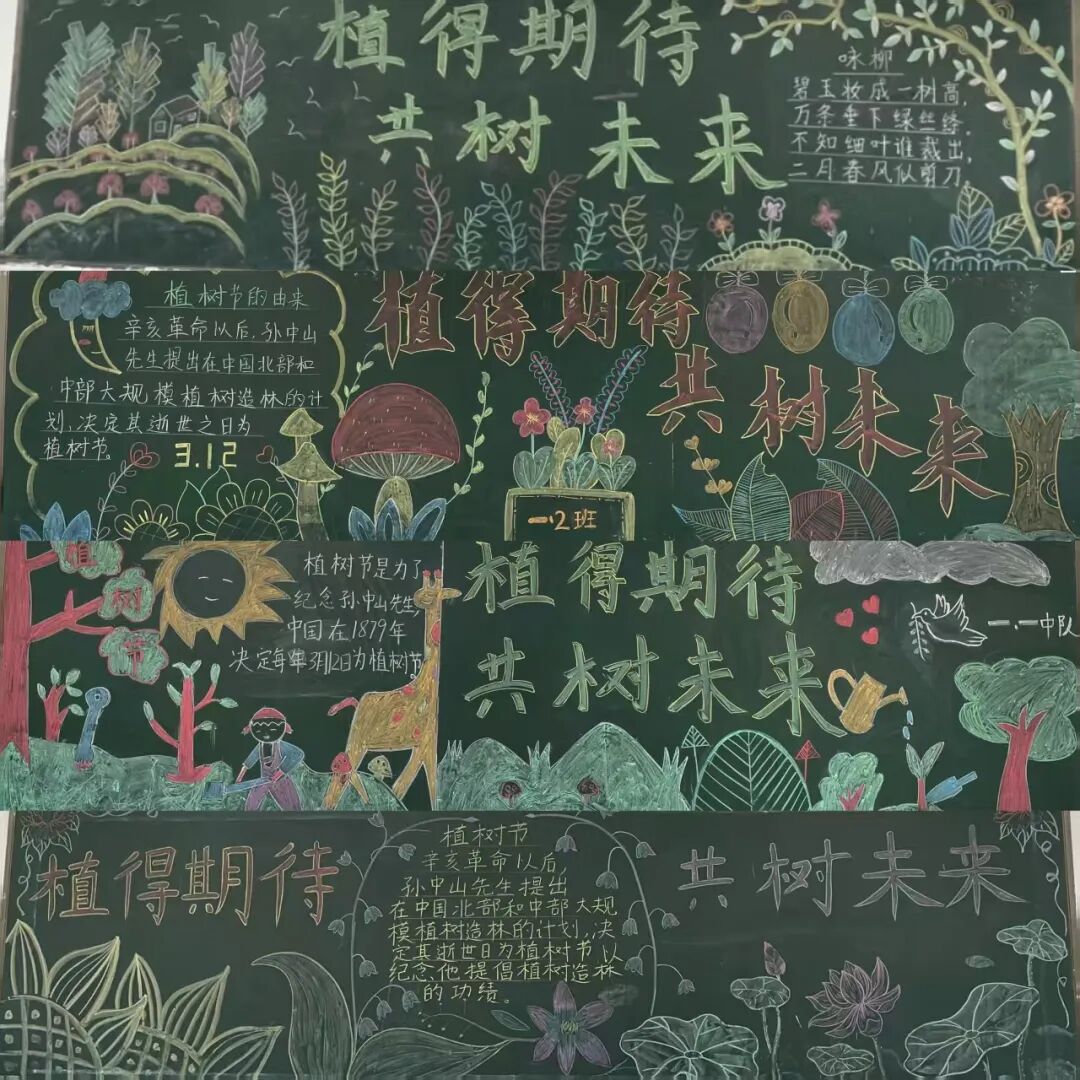 植得期待
共树未来
咏柳
碧玉妆成一树高,
万条垂下绿丝绦,
不知细叶谁裁出,
二月春风似剪刀
植树节的由来
辛亥革命以后,孙中山
先生提出在中国北部和
中部大规模植树造林的计
划,决定其逝世之日为
植树节。
3.12
植得期待
共树未来
一.2班
植树节
植树节是为了
纪念孙中山先生,
中国在1879年
决定每年3月12日为植树节
植得期待
共树未来
一.一中队
植得期待
植树节
辛亥革命以后,
孙中山先生提出
在中国北部和中部大规
模植树造林的计划,决
定其逝世日为植树节以
纪念他提倡植树造林
的功绩。
共树未来